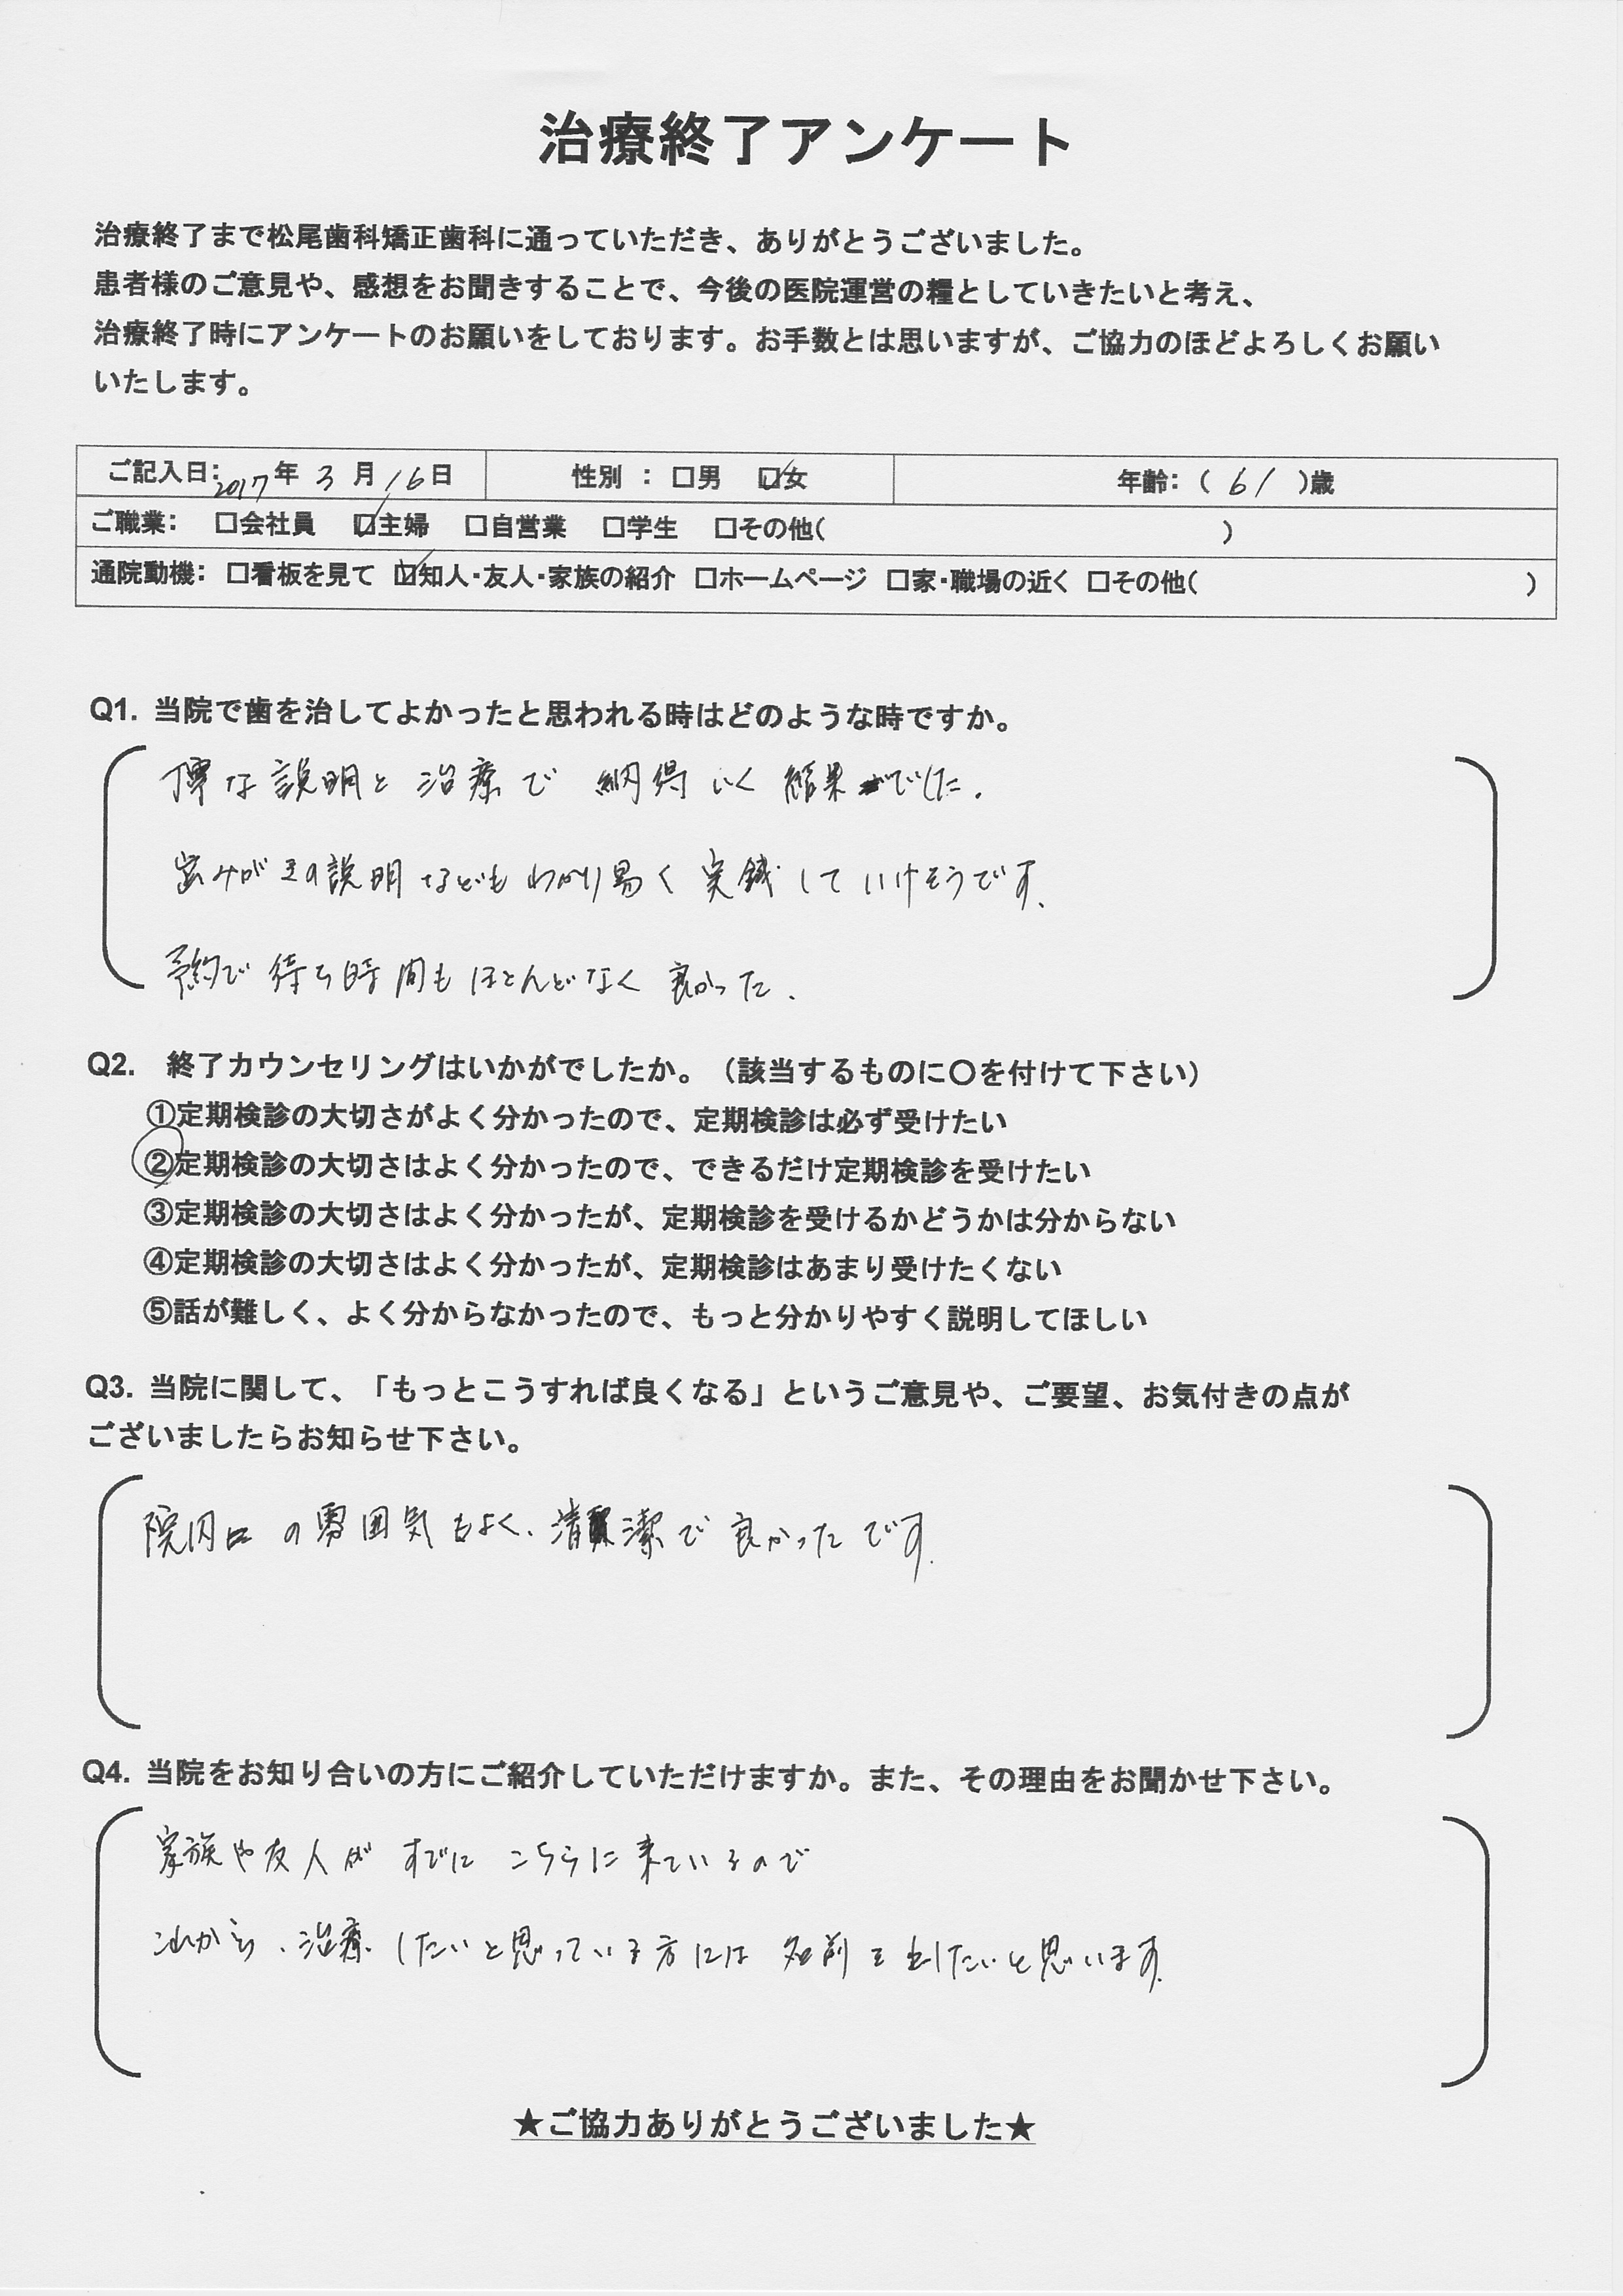 治療終了アンケート
治療終了まで松尾歯科矯正歯科に通っていただき、ありがとうございました。
患者様のご意見や、感想をお聞きすることで、今後の医院運営の糧としていきたいと考え、
治療終了時にアンケートのお願いをしております。お手数とは思いますが、ご協力のほどよろしくお願い
いたします。
ご記入日：2017年 3月 16日 性別 ： □男 ☑女 年齢：（ 61 ）歳
ご職業： □会社員 ☑主婦 □自営業 □学生 □その他（ ）
通院動機： □看板を見て ☑知人・友人・家族の紹介 □ホームページ □家・職場の近く □その他（ ）
Q1. 当院で歯を治してよかったと思われる時はどのような時ですか。
丁寧な説明と治療で 納得いく 結果でした。
歯みがきの説明などもわかり易く 実践していけそうです。
予約で待ち時間もほとんどなく 良かった。
Q2. 終了カウンセリングはいかがでしたか。（該当するものに〇を付けて下さい）
①定期検診の大切さがよく分かったので、定期検診は必ず受けたい
②定期検診の大切さはよく分かったので、できるだけ定期検診を受けたい
③定期検診の大切さはよく分かったが、定期検診を受けるかどうかは分からない
④定期検診の大切さはよく分かったが、定期検診はあまり受けたくない
⑤話が難しく、よく分からなかったので、もっと分かりやすく説明してほしい
Q3. 当院に関して、「もっとこうすれば良くなる」というご意見や、ご要望、お気付きの点が
ございましたらお知らせ下さい。
院内の雰囲気もよく、清潔で良かったです。
Q4. 当院をお知り合いの方にご紹介していただけますか。また、その理由をお聞かせ下さい。
家族や友人が すでに こちらに来ているので
これから、治療したいと思っている方には 名前を出したいと思います。
★ご協力ありがとうございました★